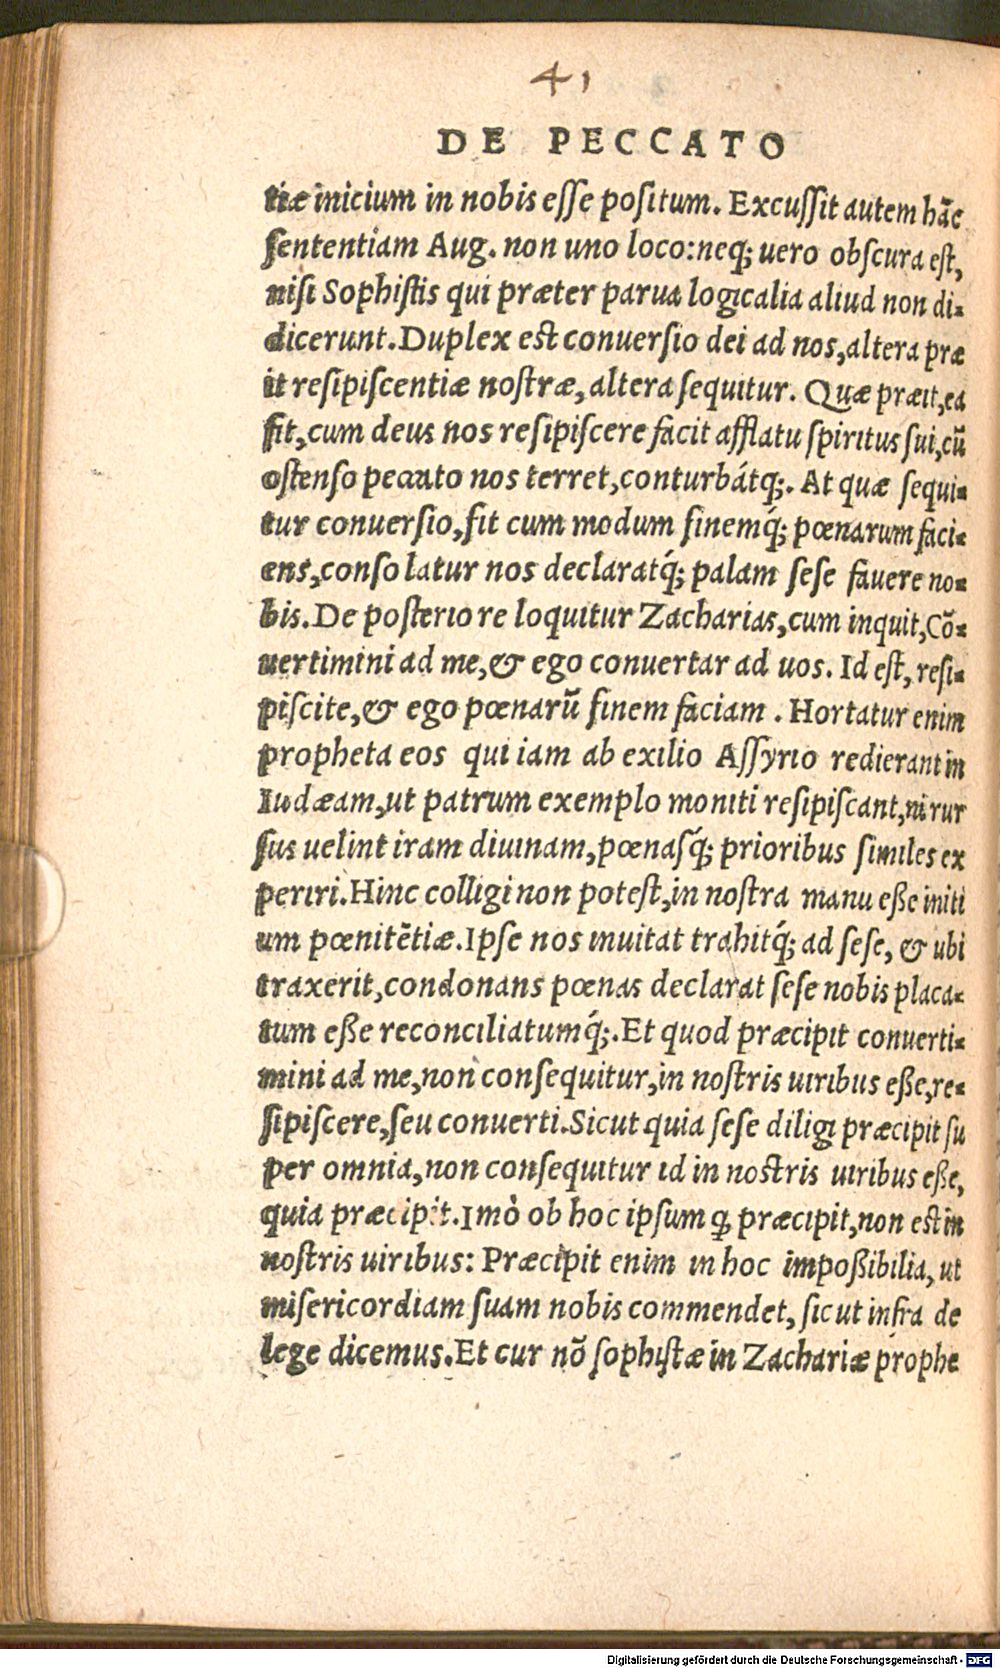 41
DE PECCATO
tiæ inicium in nobis esse positum. Excussit autem hāc
sententiam Aug. non uno loco: neq; uero obscura est,
nisi Sophistis qui præter parua logicalia aliud non di-
dicerunt. Duplex est conuersio dei ad nos, altera præ
it resipiscentiæ nostræ, altera sequitur. Quæ præit, ea
fit, cum deus nos resipiscere facit afflatu spiritus sui, cū
ostenso peccato nos terret, conturbátq;. At quæ sequi-
tur conuersio, fit cum modum finemq́; pœnarum faci-
ens, consolatur nos declaratq́; palam sese fauere no-
bis. De posteriore loquitur Zacharias, cum inquit, Cō-
uertimini ad me, & ego conuertar ad uos. Id est, resi-
piscite, & ego pœnarū finem faciam. Hortatur enim
propheta eos qui iam ab exilio Assyrio redierant in
Iudæam, ut patrum exemplo moniti resipiscant, ni rur
sus uelint iram diuinam, pœnasq́; prioribus similes ex
periri. Hinc colligi non potest, in nostra manu eße initi
um pœnitētiæ. Ipse nos inuitat trahitq́; ad sese, & ubi
traxerit, condonans pœnas declarat sese nobis placa-
tum eße reconciliatumq́;. Et quod præcipit conuerti-
mini ad me, non consequitur, in nostris uiribus eße, re-
sipiscere, seu conuerti. Sicut quia sese diligi præcipit su
per omnia, non consequitur id in nostris uiribus eße,
quia præcipit. Imò ob hoc ipsum ꝙ præcipit, non est in
nostris uiribus: Præcipit enim in hoc impoßibilia, ut
misericordiam suam nobis commendet, sicut infra de
lege dicemus. Et cur nō sophistæ in Zachariæ prophe
Digitalisierung gefördert durch die Deutsche Forschungsgemeinschaft - DFG